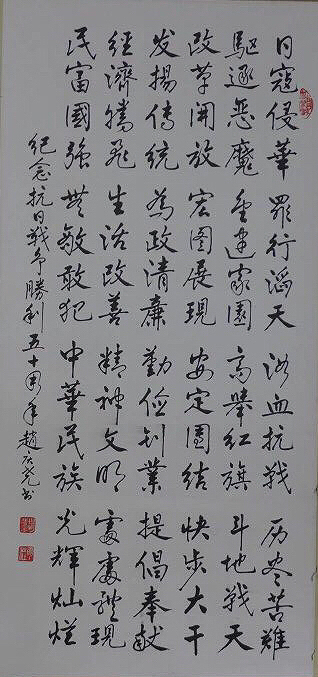 日寇侵華罪行滔天浴血抗戰历尽苦難
驅逐惡魔重建家園高舉红旗斗地戰天
改革開放宏图展現安定團结快步大干
发揚傳统為政清廉勤俭创業提倡奉献
經濟騰飛生活改善精神文明處處體現
民富國強敢犯中華民族光輝灿烂
纪念抗日戰争勝利五十周年趙书